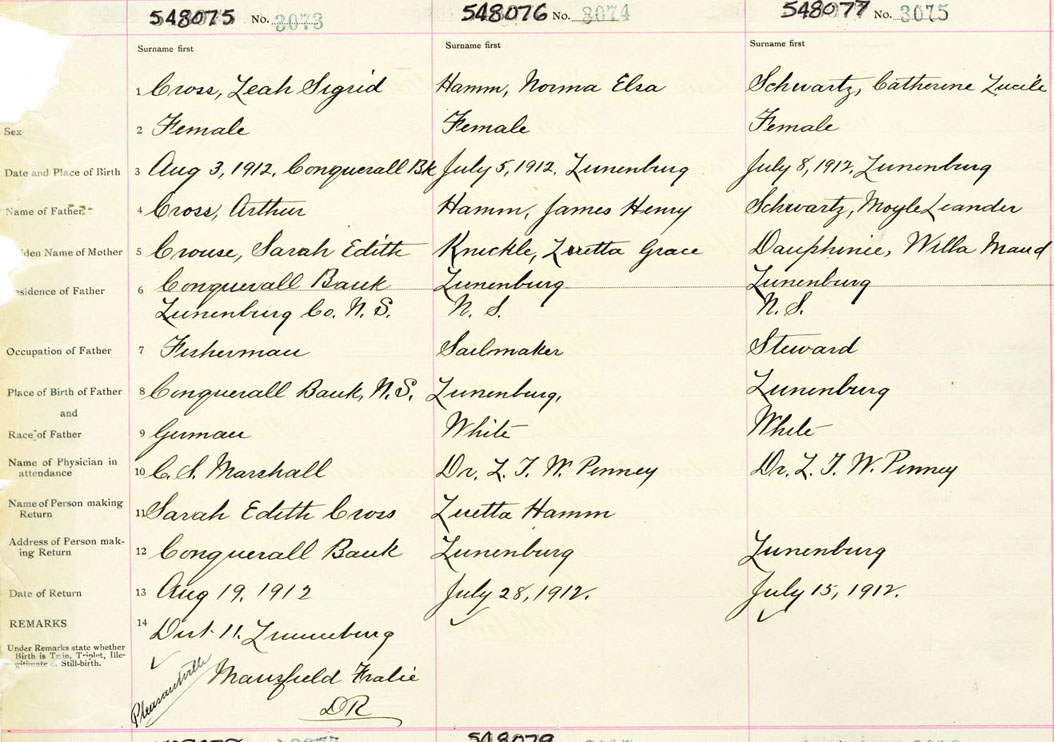 548075 No. 3073
548076 No. 3074
548077 No. 3075
Surname first
Surname first
Surname first
1 Cross, Leah Sigrid
Hamm, Norma Elsa
Schwartz, Catherine Lucile
Sex
2 Female
Female
Female
Date and Place of Birth
3 Aug 3, 1912, Conquerall Bk
July 5, 1912, Lunenburg
July 8, 1912, Lunenburg
Name of Father
4 Cross, Arthur
Hamm, James Henry
Schwartz, Moyle Leander
iden Name of Mother
5 Crouse, Sarah Edith
Knickle, Loretta Grace
Dauphinie, Willa Maud
esidence of Father
6 Conquerall Bank
Lunenburg
Lunenburg
Lunenburg Co. N.S.
N. S.
N. S.
Occupation of Father
7 Fisherman
Sailmaker
Steward
Place of Birth of Father
8 Conquerall Bank, N.S.
Lunenburg,
Lunenburg
and
Race of Father
9 German
White
White
Name of Physician in
attendance
10 C. S. Marshall
Dr. L. T. W. Penney
Dr. L. T. W. Penney
Name of Person making
Return
11 Sarah Edith Cross
Luetta Hamm
Address of Person mak-
ing Return
12 Conquerall Bank
Lunenburg
Lunenburg
Date of Return
13 Aug 19, 1912
July 28, 1912.
July 15, 1912.
REMARKS
14 Dist. 11. Lunenburg
Under Remarks state whether
Birth is Twin, Triplet, Ille-
gitimate or Still-birth.
Pleasantville
Mansfield Fralic
DR
548079